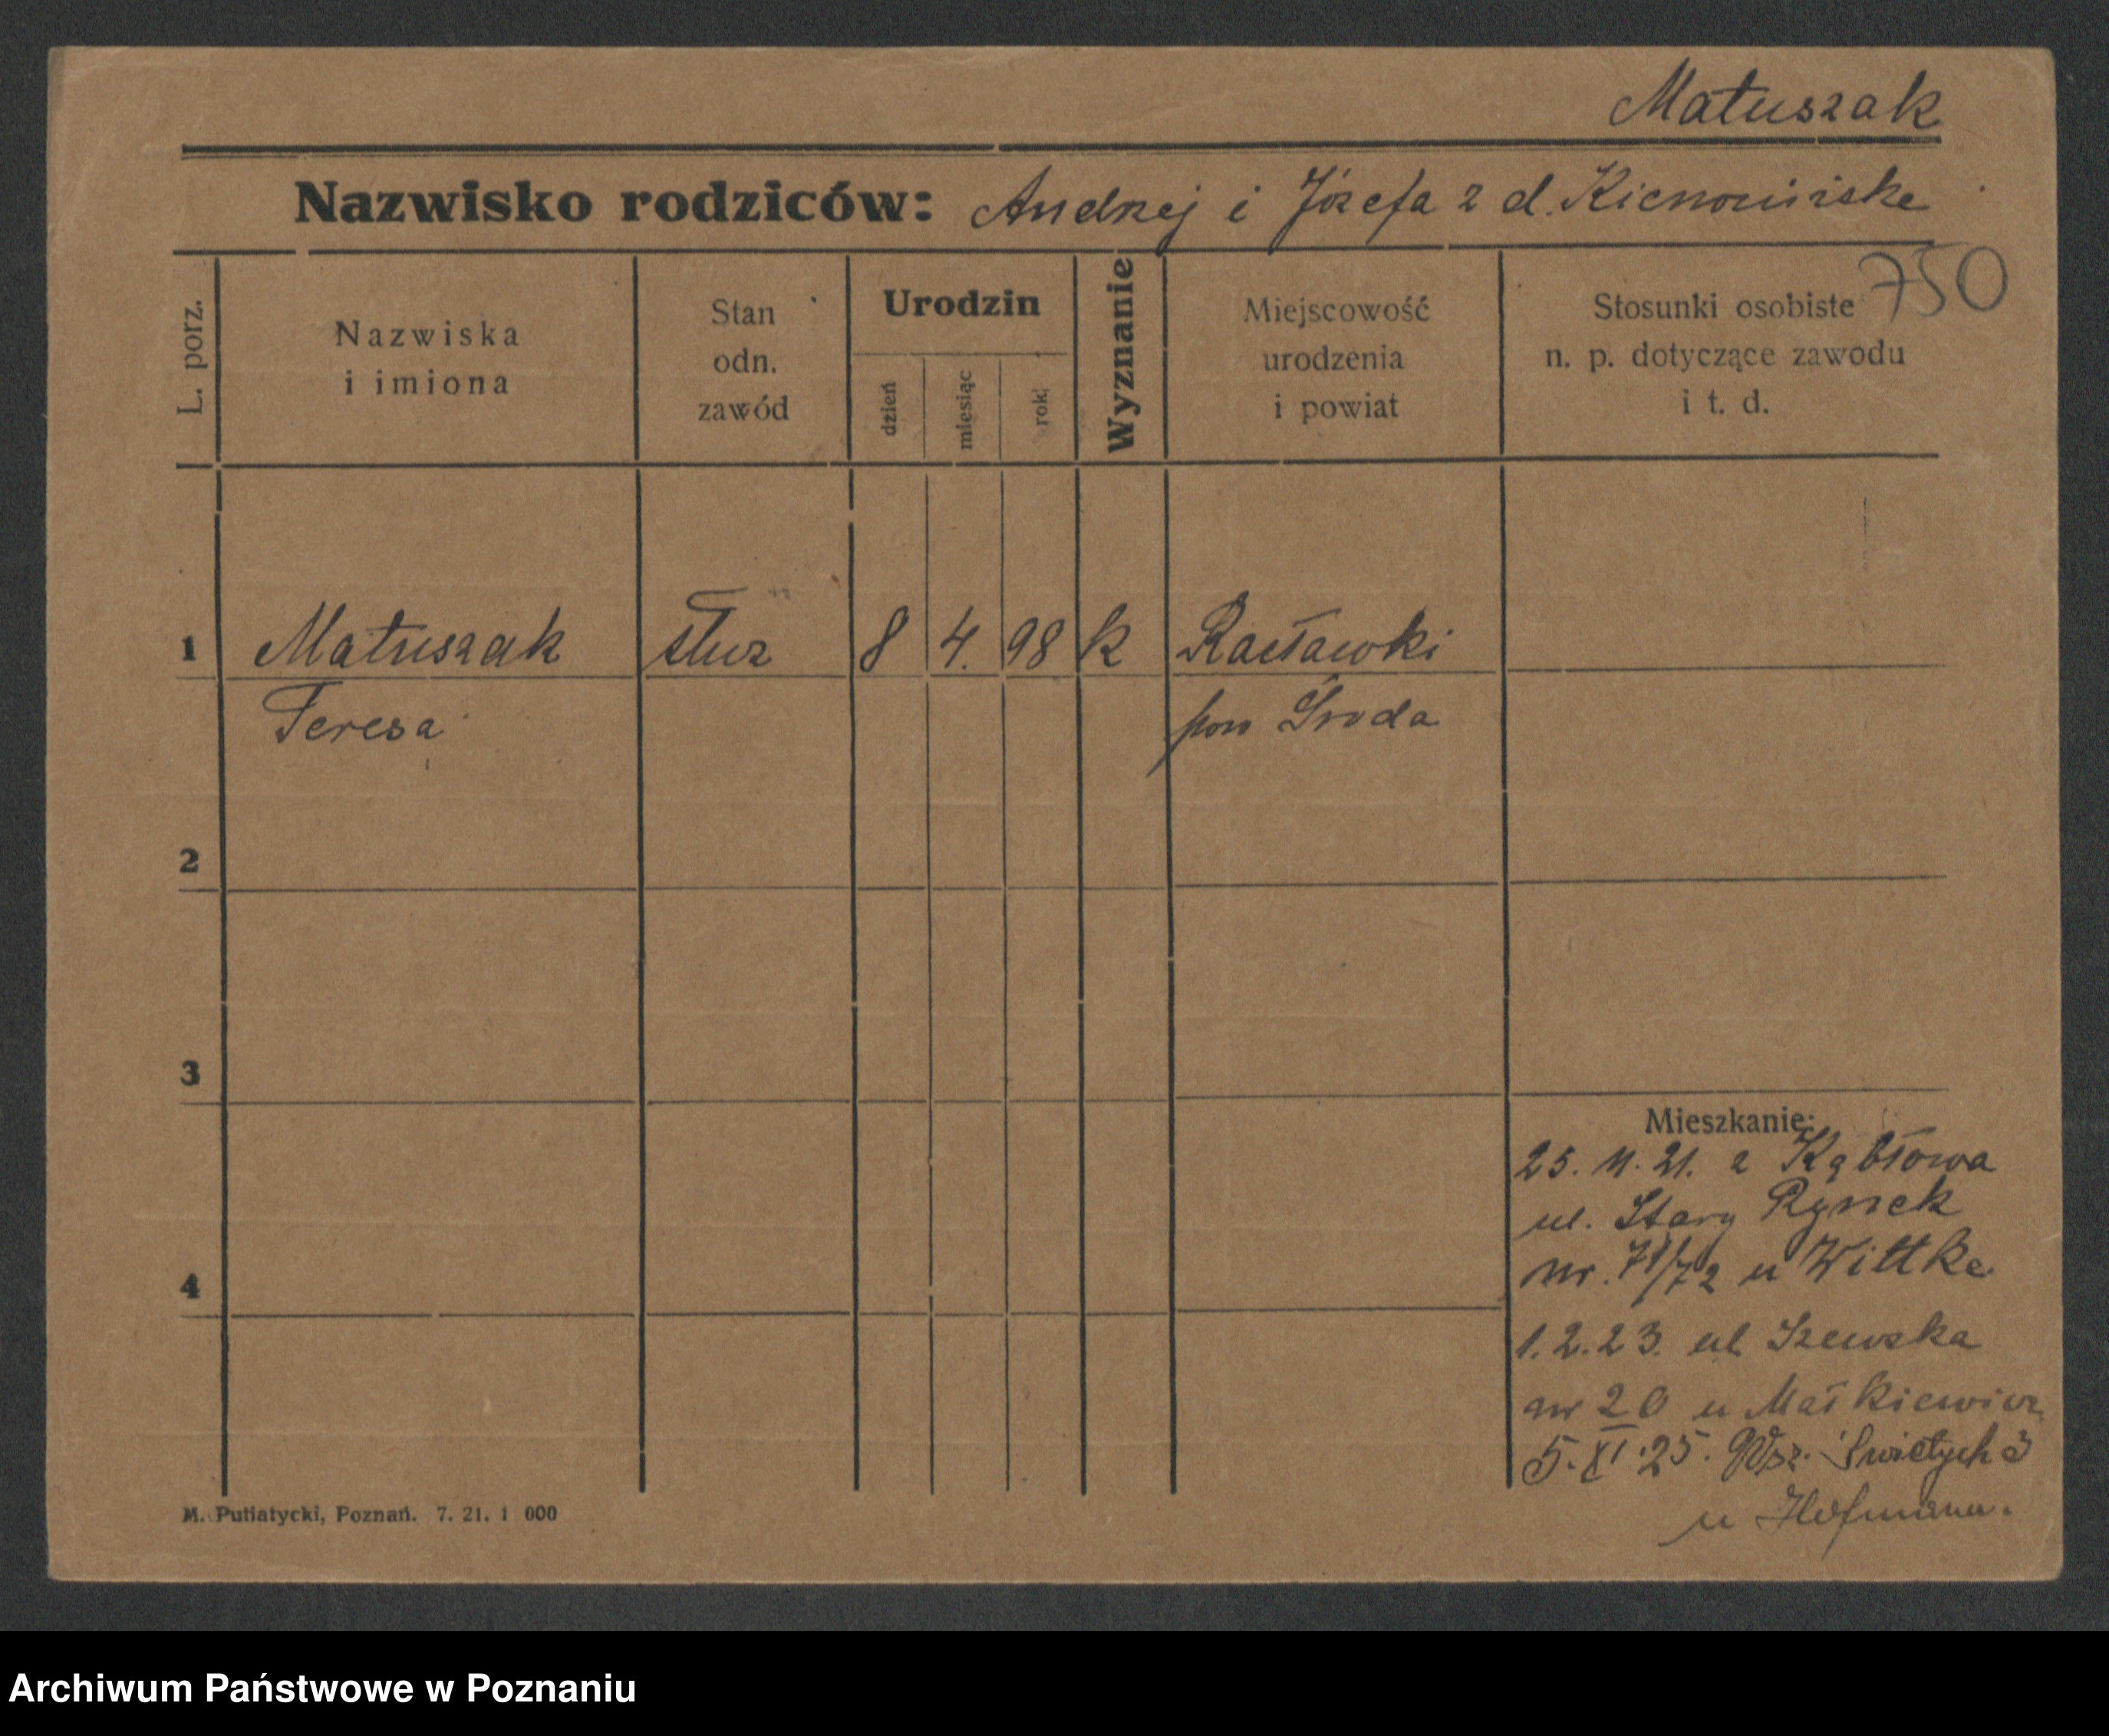 Matuszak
Nazwisko rodziców: Andrzej i Józefa z d.
750
L. porz.
Nazwiska
i imiona
Stan
odn.
zawód
Urodzin
dzień
miesiąc
rok
Wyznanie
Miejscowość
urodzenia
i powiat
Stosunki osobiste
n. p. dotyczące zawodu
i t. d.
1 Matuszak służ 8 4. 98 k Racławki
Teresa pow Środa
2
3
4
Mieszkanie:
25. 11. 21. z Kąbłowa
ul. Stary Rynek
nr. 71/72 u Wittke
1.2.23. ul Szewska
nr 20 u Małkiewicz
5. XI. 25. Wsz. Świętych 3
u Hofmann.
M. Putiatycki, Poznań. 7. 21. 1 000
Archiwum Państwowe w Poznaniu